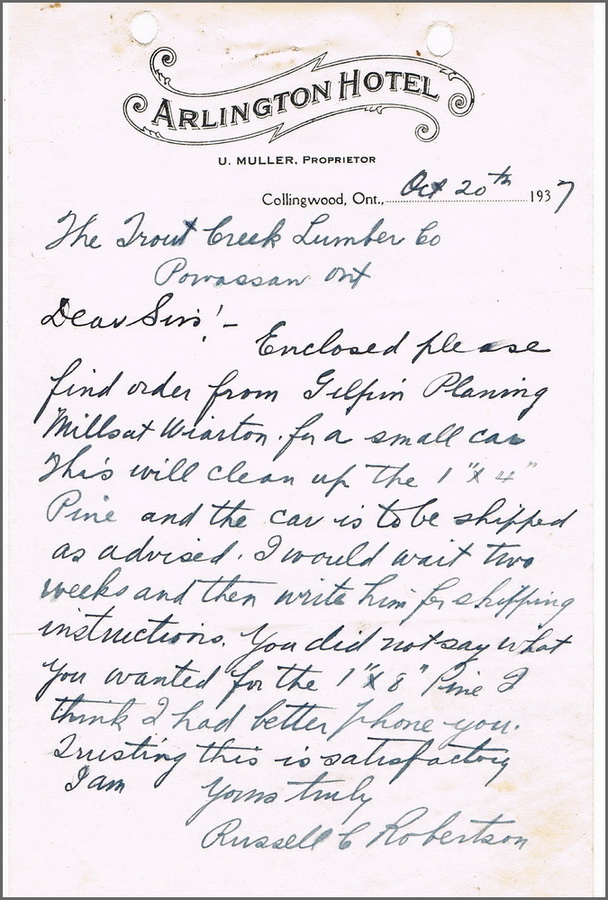 ARLINGTON HOTEL
U. MULLER, PROPRIETOR
Collingwood, Ont., Oct 20th 1937
The Trout Creek Lumber Co
Powassan Ont
Dear Sirs! –
Enclosed please
find order from Gilpin Planing
Mills at Wiarton. for a small car
This will clean up the 1" x 4"
Pine and the car is to be shipped
as advised. I would wait two
weeks and then write him for shipping
instructions. You did not say what
you wanted for the 1" x 8" Pine I
think I had better phone you.
Trusting this is satisfactory
I am Yours truly
Russell C Robertson